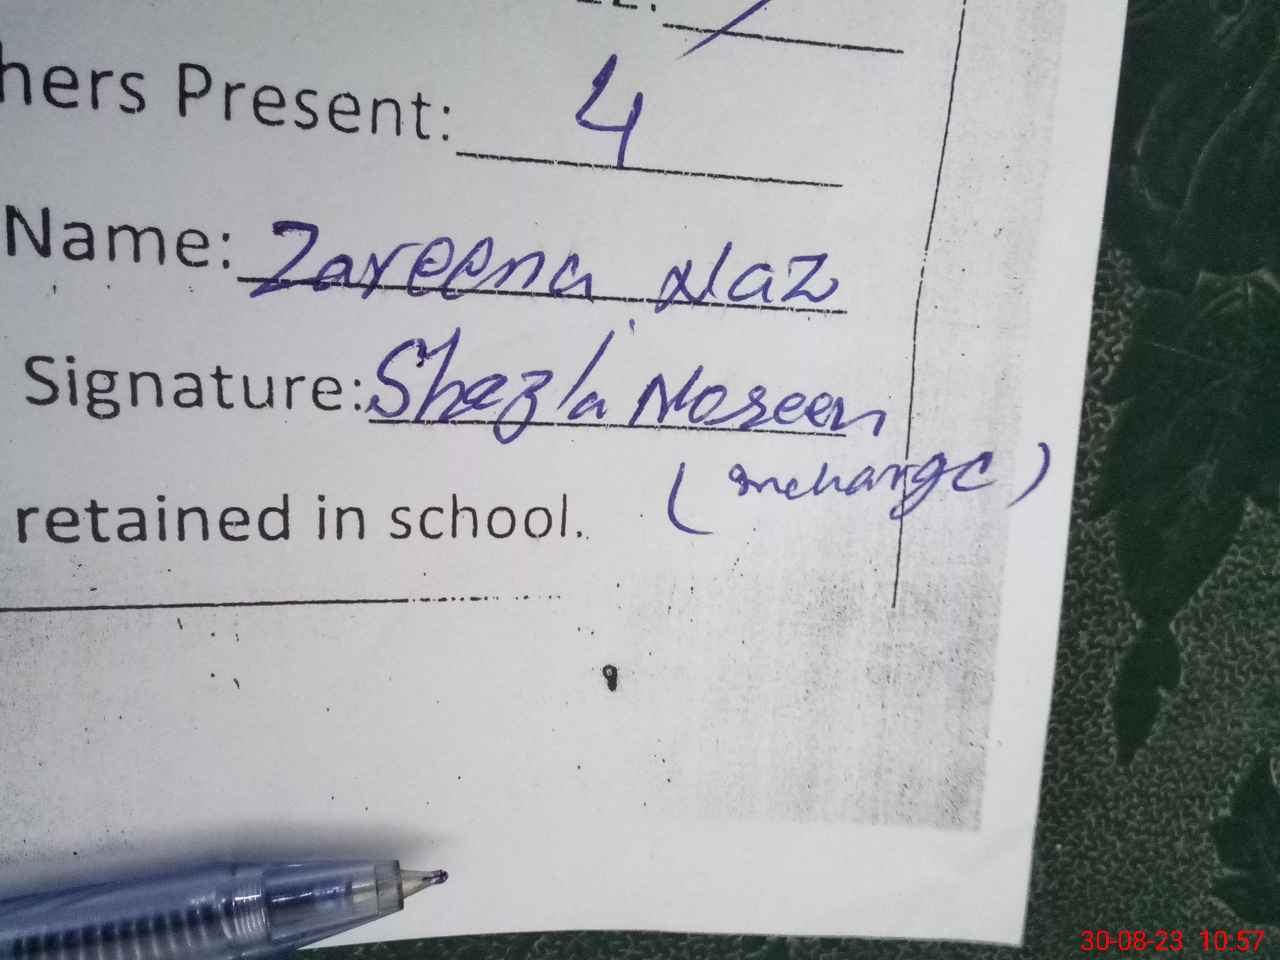 hers Present: 4
Name: Zareena Naz
Signature: Shazla Noseen
(Incharge)
retained in school.
30-08-23 10:57